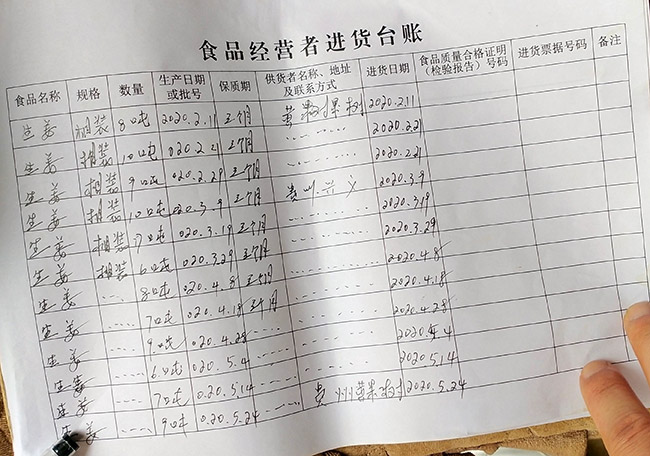 食品经营者进货台账
食品名称 规格 数量 生产日期或批号 保质期 供货者名称、地址及联系方式 进货日期 食品质量合格证明(检验报告)号码 进货票据号码 备注
生姜 箱装 8吨 2020.2.11 三个月 2020.2.11
生姜 箱装 10吨 020.2.21 三个月 2020.2.21
生姜 箱装 9吨 020.2.29 三个月 2020.2.21
生姜 箱装 10吨 020.3.9 三个月 贵州兴义 2020.3.9
生姜 箱装 7吨 020.3.19 三个月 2020.3.19
生姜 箱装 6吨 020.3.29 三个月 2020.3.29
生姜 8吨 020.4.8 三个月 2020.4.8
生姜 7吨 020.4.18 三个月 2020.4.18
生姜 9吨 020.4.28 2020.4.28
生姜 6吨 020.5.4 2020.5.4
生姜 7吨 020.5.14 2020.5.14
生姜 9吨 020.5.24 贵州 2020.5.24